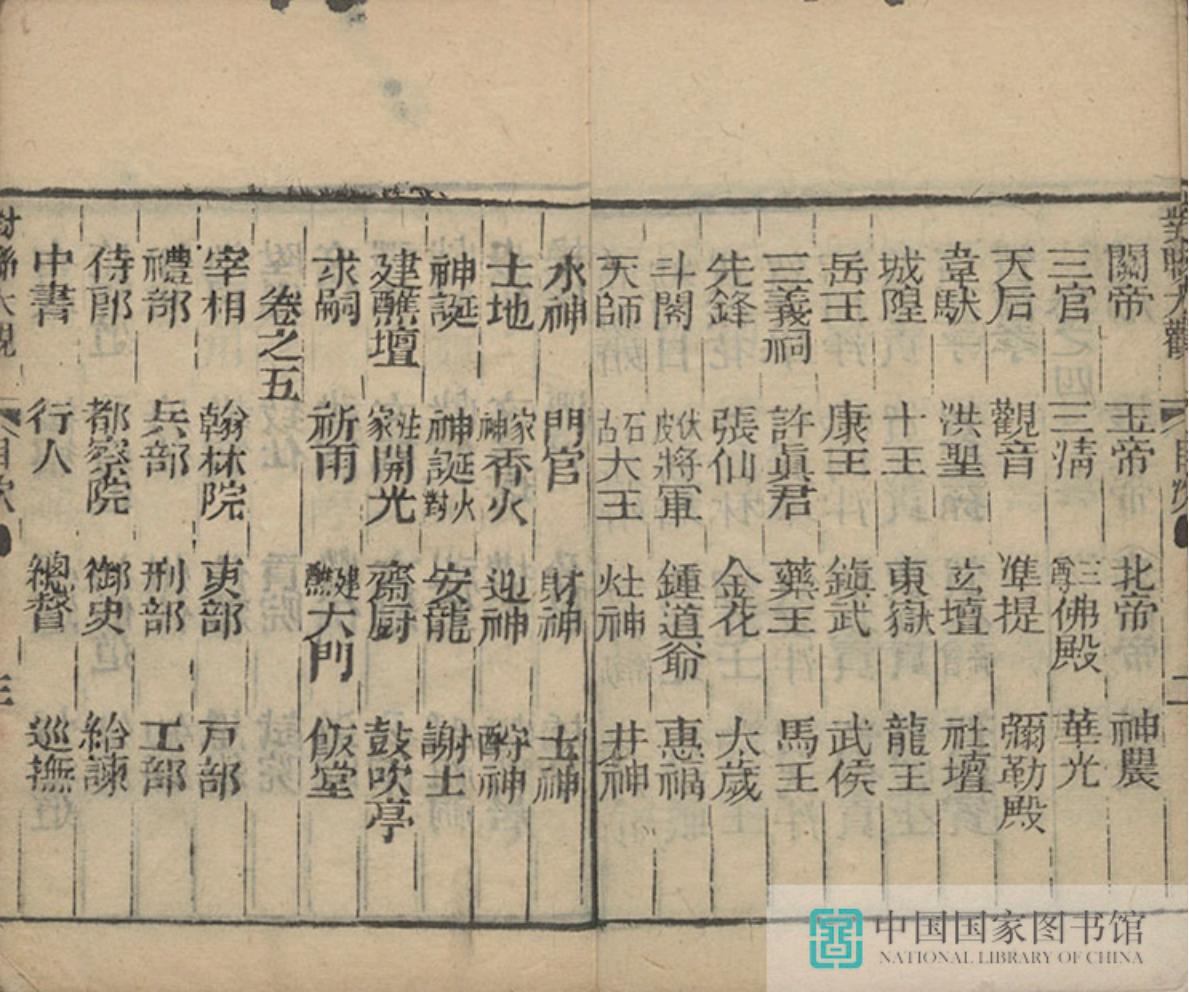 對聯大觀 目次 二
關帝 玉帝 北帝 神農
三官 三清 三尊佛殿 華光
天后 觀音 準提 彌勒殿
韋馱 洪聖 玄壇 社壇
城隍 十王 東嶽 龍王
岳王 康王 鎮武 武侯
三義祠 許眞君 藥王 馬王
先鋒 張仙 金花 太歲
斗閣 伏皮將軍 鍾道爺 惠福
天師 石古大王 灶神 井神
水神 門官 財神 土神
土地 家神香火 迎神 酧神
神誕 神誕火對 安龍 謝土
建醮壇 在家開光 齋厨 鼓吹亭
求嗣 祈雨 建醮大門 飯堂
卷之五
宰相 翰林院 吏部 戸部
禮部 兵部 刑部 工部
侍郎 都察院 御史 給諫
中書 行人 總督 巡撫
對聯大觀 目次 三
中国国家图书馆
NATIONAL LIBRARY OF CHINA